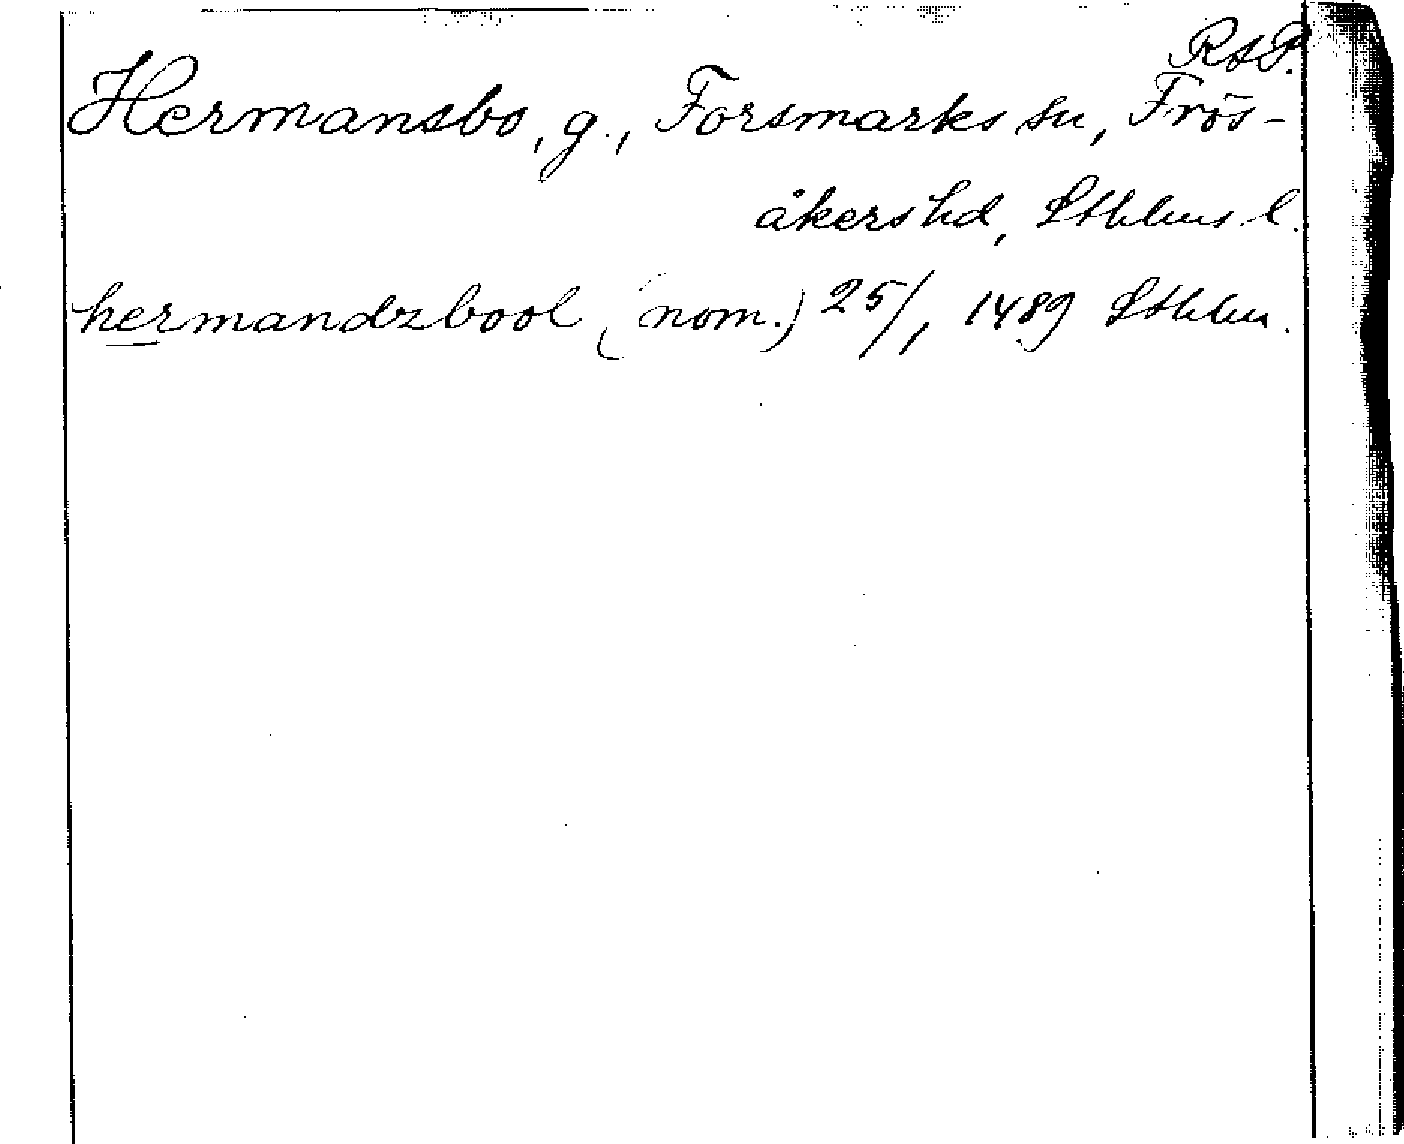 RAP.
Hermansbo, g., Forsmarks sn, Frös-
åkers hd, Sthlms l.
hermandzbool (nom.) 25/1 1489 Sthlm.